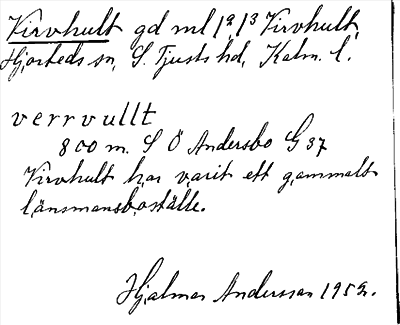 Virvhult gd ml 1a 13 Virvhult,
Hjorteds sn, S. Tjusts hd, Kalm. l.
verrvullt
800 m. S Ö Andersbo G 37
Virvhult har varit ett gammalt
länsmansboställe.
Hjalmar Andersson 1952.